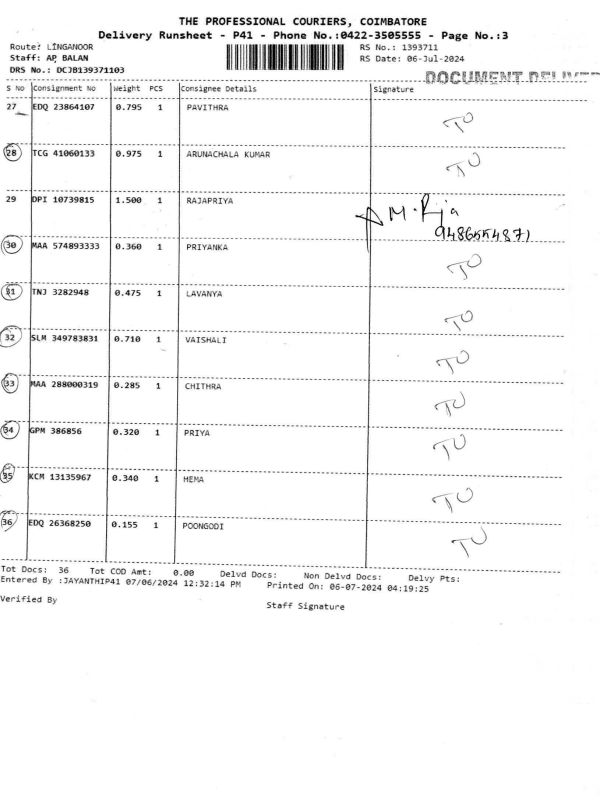 THE PROFESSIONAL COURIERS, COIMBATORE
Delivery Runsheet - P41 - Phone No.:0422-3505555 - Page No.:3
Route: LINGANOOR RS No.: 1393711
Staff: AP BALAN RS Date: 06-Jul-2024
DRS No.: DCJB139371103 DOCUMENT
S No Consignment No Weight PCS Consignee Details Signature
27 EDQ 23864107 0.795 1 PAVITHRA TO
28 TCG 41060133 0.975 1 ARUNACHALA KUMAR TO
29 DPI 10739815 1.500 1 RAJAPRIYA
9486554871
30 MAA 574893333 0.360 1 PRIYANKA TO
31 TNJ 3282948 0.475 1 LAVANYA TO
32 SLM 349783831 0.710 1 VAISHALI TO
33 MAA 288000319 0.285 1 CHITHRA TO
34 GPM 386856 0.320 1 PRIYA TO
35 KCM 13135967 0.340 1 HEMA TO
36 EDQ 26368250 0.155 1 POONGODI TO
Tot Docs: 36 Tot COD Amt: 0.00 Delvd Docs: Non Delvd Docs: Delvy Pts:
Entered By :JAYANTHIP41 07/06/2024 12:32:14 PM Printed On: 06-07-2024 04:19:25
Verified By Staff Signature